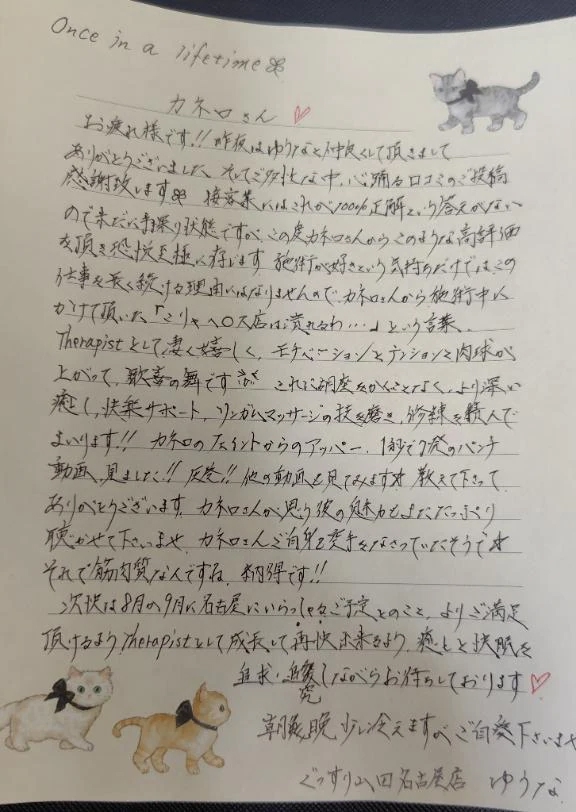 Once in a lifetime
カネロさん
お疲れ様です!! 昨夜はゆうなと仲良くして頂きまして
ありがとうございました。そしてご多忙な中、心踊る口コミのご投稿
感謝致します 接客業にはこれが100%正解という答えがない
ので未だに手探り状態ですが、この度カネロさんからこのような高評価
を頂き恐悦至極に存じます 施術が好きという気持ちだけではこの
仕事を長く続ける理由にはなりませんので、カネロさんから施術中に
かけて頂いた「こりゃヘ〇ス店は潰れるわ…」という言葉、
Therapistとして凄く嬉しく、モチベーションとテンションと肉球が
上がって、歓喜の舞です これに胡座をかくことなく、より深い
癒し、快楽サポート、リンガムマッサージの技を磨き、修練を積んで
まいります!! カネロのフェイントからのアッパー、1秒で7発のパンチ
動画、見ました!! 圧巻!! 他の動画も見てみます 教えて下って
ありがとうございます。カネロさんが思う彼の魅力もまたたっぷり
聴かせて下さいませ カネロさんご自身も選手をなさっていたそうで
それで筋肉質なんですね、納得です!!
次は8月か9月に名古屋にいらっしゃるご予定とのこと、よりご満足
頂けるようTherapistとして成長して再快出来るよう、癒しと快眠を
追求・追究しながらお待ちしております
朝晩 少し冷えますのでご自愛下さいませ
ぐっすり山田名古屋店 ゆうな